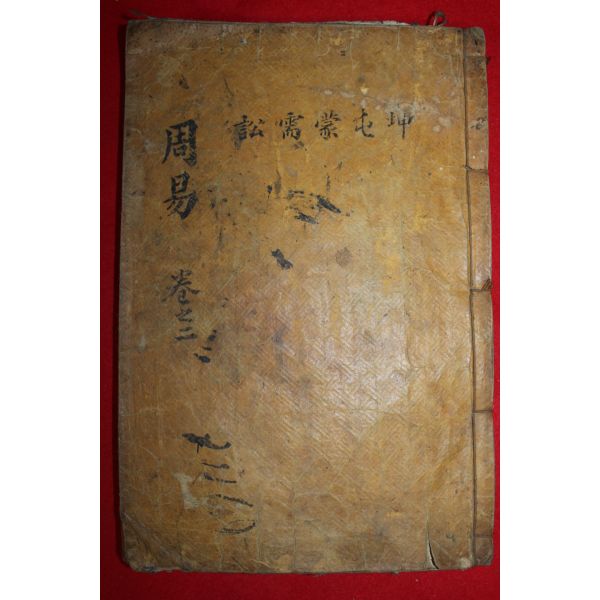 坤屯蒙需訟
周易 卷之二